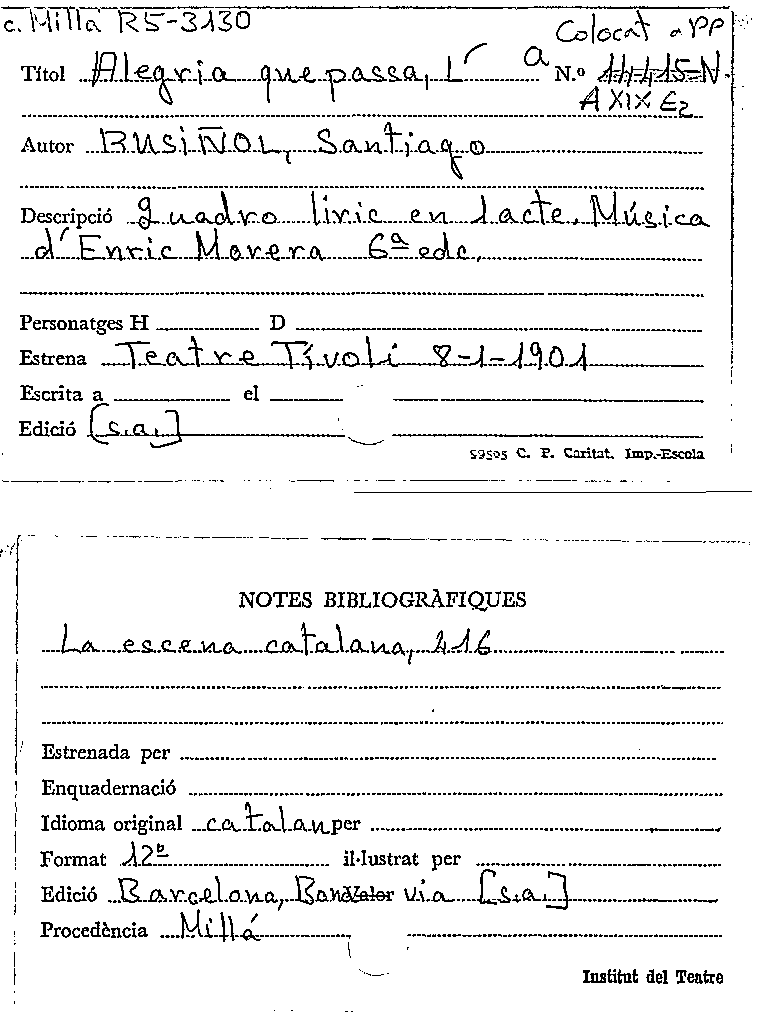 c. Millà R5-3130
Colocat a PP
Títol Alegria que passa, L' a N.º 44415-N
A XIX E2
Autor RUSIÑOL, Santiago
Descripció Quadro líric en 1 acte. Música
d'Enric Morera 6ª edc.
Personatges H D
Estrena Teatre Tívoli 8-1-1901
Escrita a el
Edició [s.a.]
59505 C. P. Caritat. Imp.-Escola
NOTES BIBLIOGRÀFIQUES
La escena catalana, 416
Estrenada per
Enquadernació
Idioma original catalan per
Format 12º il·lustrat per
Edició Barcelona, Bonavia [s.a.]
Procedència Millá
Institut del Teatre